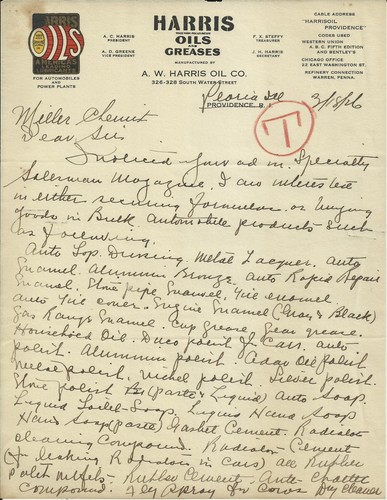 HARRIS
OILS
AMERICA'S
FOR AUTOMOBILES
AND
POWER PLANTS
A. C. HARRIS
PRESIDENT
A. O. GREENE
VICE PRESIDENT
HARRIS
OILS
AND
GREASES
MANUFACTURED BY
A. W. HARRIS OIL CO.
326-328 SOUTH WATER STREET
PROVIDENCE, R.
F. X. STEFFY
TREASURER
J. H. HARRIS
SECRETARY
CABLE ADDRESS
"HARRISOIL,
PROVIDENCE"
CODES USED
WESTERN UNION
A. B. C. FIFTH EDITION
AND BENTLEY'S
CHICAGO OFFICE
22 EAST WASHINGTON ST.
REFINERY CONNECTION
WARREN, PENNA.
Peoria Ill
T
Miller Chemist
Dear Sir
I noticed your ad in Specialty
Salesman Magazine, I am interested
in either securing formulas or buying
goods in Bulk Automobile products Such
as following.
Auto Top Dressing. Metal Lacquer. Auto
Enamel. Aluminum Bronze. Auto Rapid Repair
Enamel. Stove pipe Enamel. Tire enamel.
Auto Tire cover. Engine Enamel (Gray & Black)
Gas Range Enamel. Cup Grease. Gear grease.
Household Oil. Duco polish for Cars. Auto
polish. Aluminum polish. Oil polish
polish, Nickel polish. Silver polish.
Stove polish (paste & Liquid) Auto Soap.
Liquid Toilet Soap. Liquid Hand Soap
Hand Soap (paste) Gasket Cement. Radiator
cleaning Compound Radiator Cement
leaking Radiator in Cars) all Rubber
Rubber Cement. Anti-Chatter
Compound. Fly Spray for Cows. Dry Cleaner